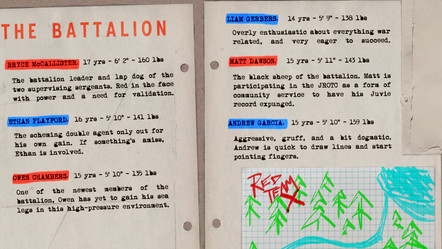 THE BATTALION
BRYCE McCALLISTER. 17 yrs - 6' 2" - 160 lbs
The battalion leader and lap dog of the
two supervising sergeants. Red in the face
with power and a need for validation.
ETHAN FLAYFORD. 16 yrs - 5' 10" - 141 lbs
The scheming double agent only out for
his own gain. If something's amiss,
Ethan is involved.
OWEN CHAMBERS. 15 yrs - 5' 10" - 135 lbs
One of the newest members of the
battalion, Owen has yet to gain his sea
legs in this high-pressure environment.
LIAM GERBERS. 14 yrs - 5' 9" - 138 lbs
Overly enthusiastic about everything war
related, and very eager to succeed.
MATT DAWSON. 15 yrs - 5' 11" - 143 lbs
The black sheep of the battalion. Matt is
participating in the JROTC as a form of
community service to have his Juvie
record expunged.
ANDREW GARCIA. 15 yrs - 5' 10" - 159 lbs
Aggressive, gruff, and a bit dogmatic.
Andrew is quick to draw lines and start
pointing fingers.
RED
TEAM
X